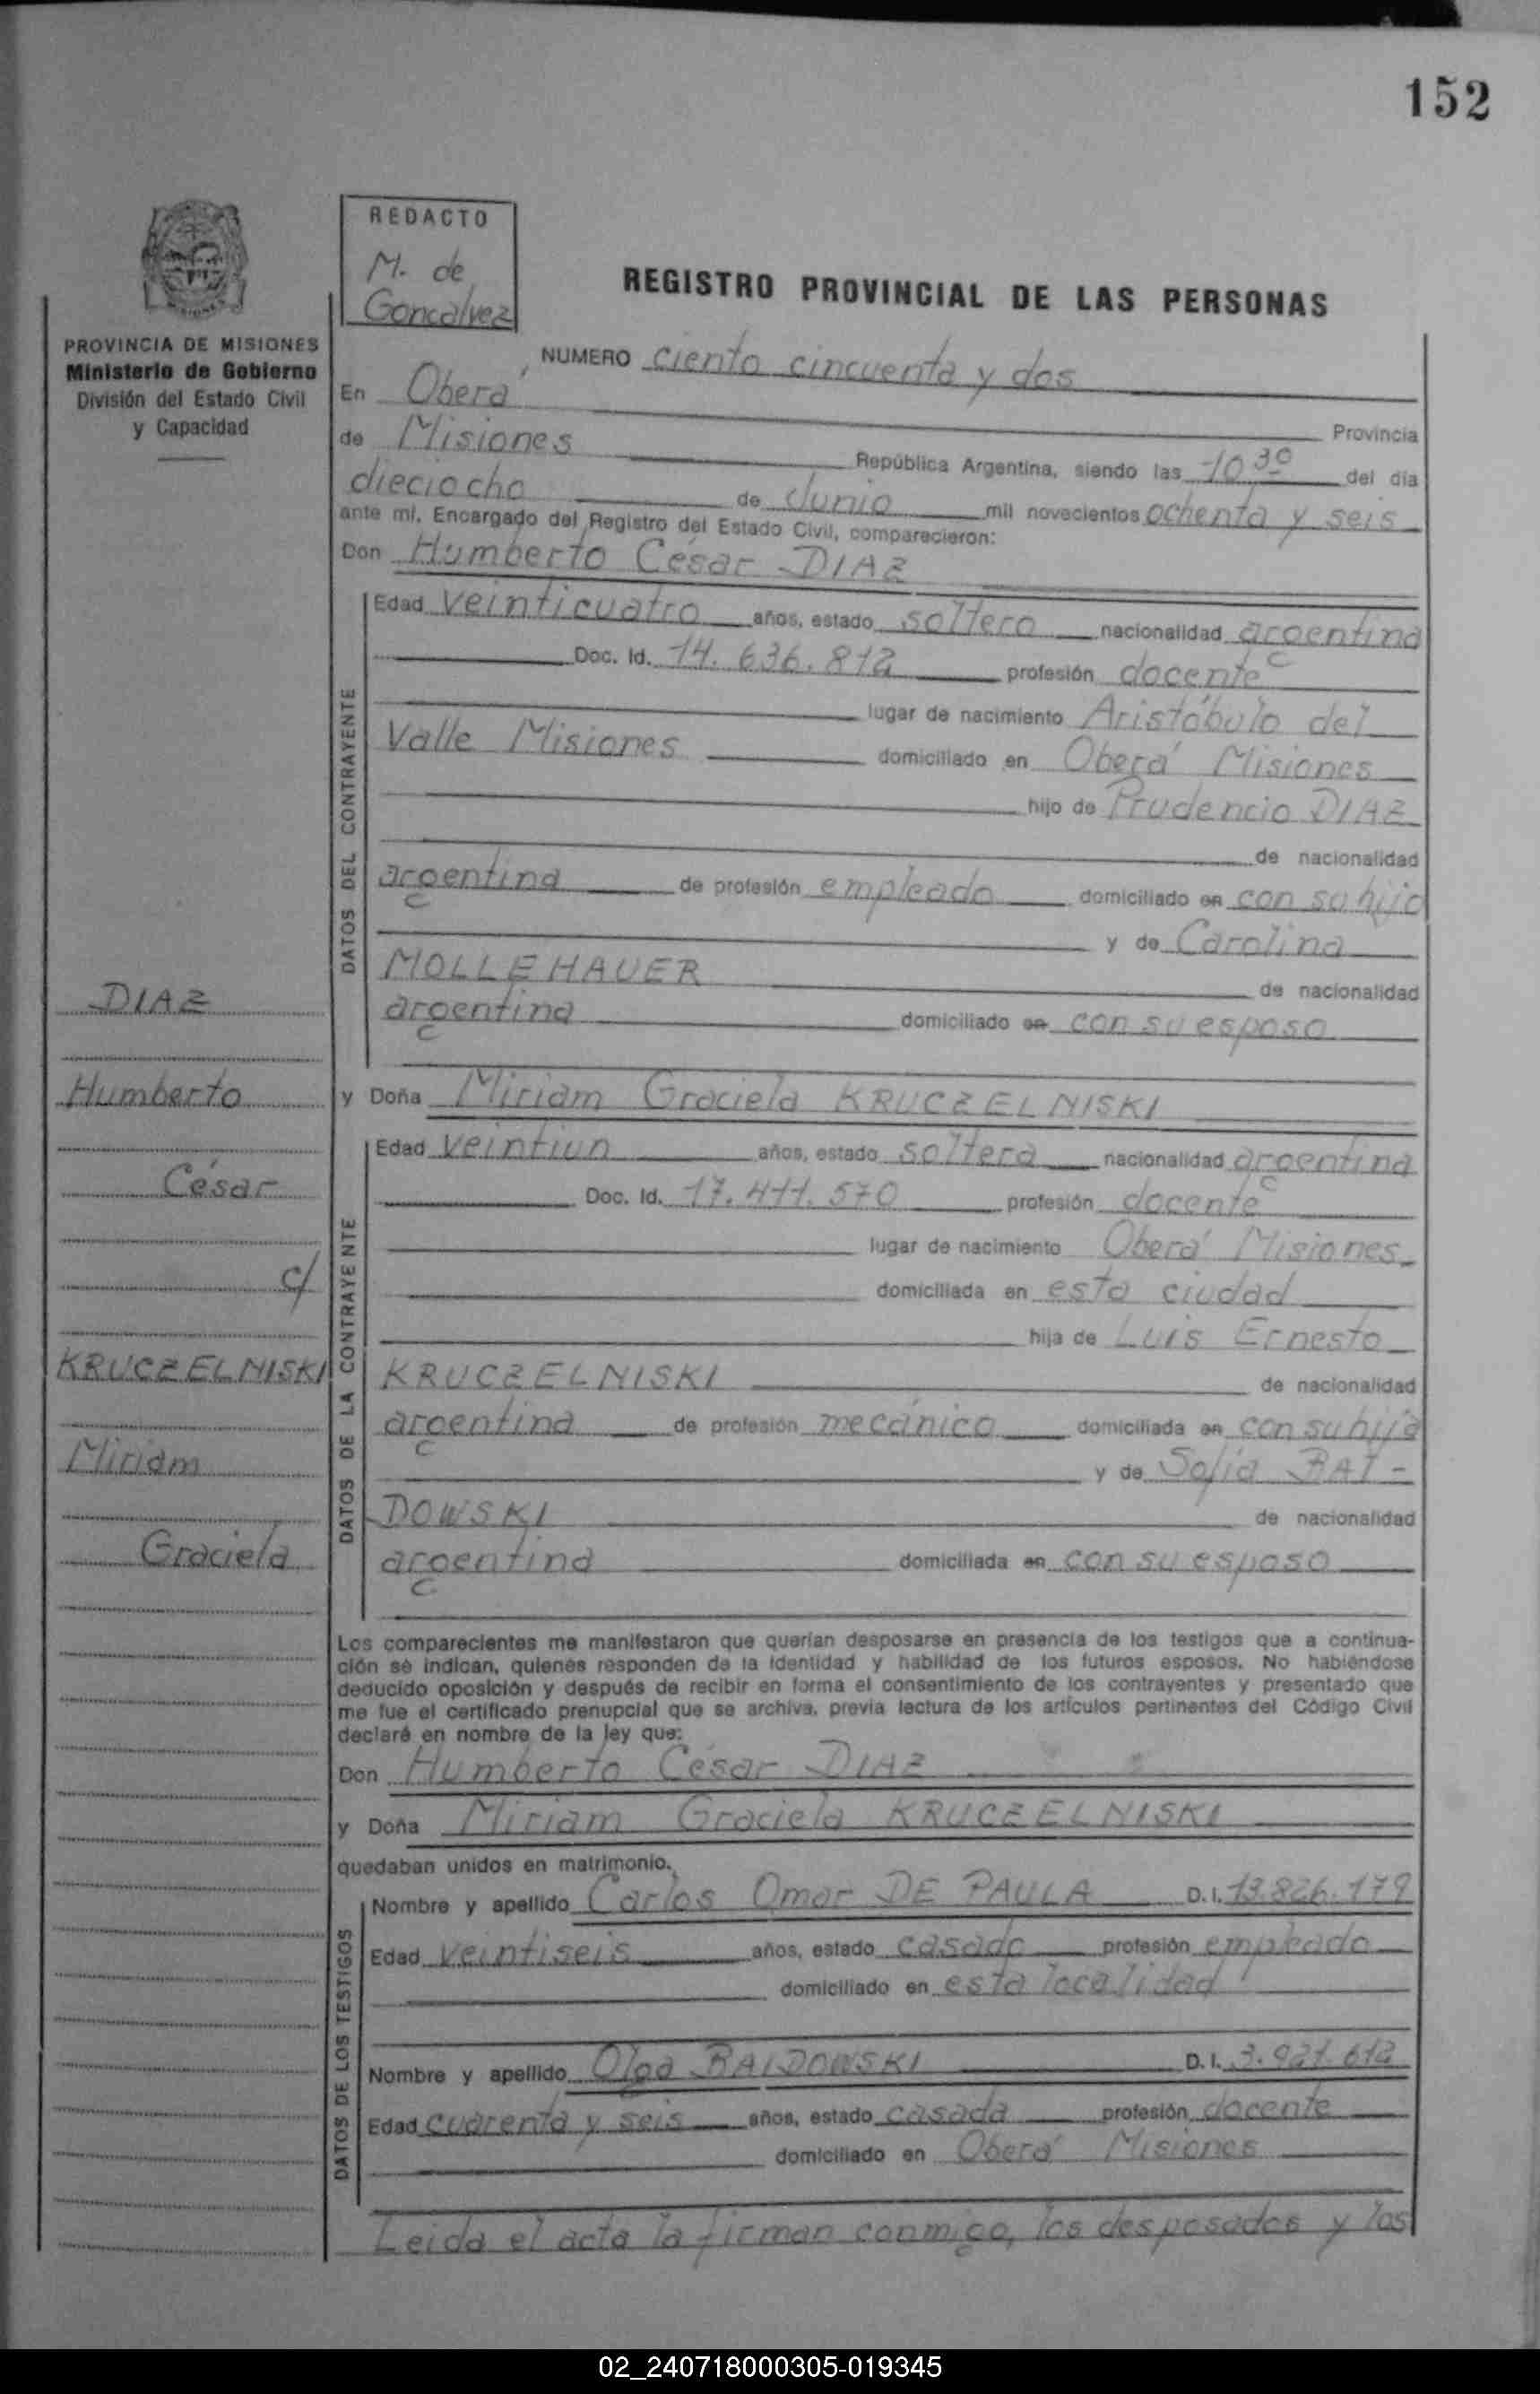 152
REDACTO
M. de
Goncalvez
REGISTRO PROVINCIAL DE LAS PERSONAS
PROVINCIA DE MISIONES
Ministerio de Gobierno
División del Estado Civil
y Capacidad
NUMERO ciento cincuenta y dos
En Oberá
Provincia
de Misiones República Argentina, siendo las 10 30 del día
dieciocho de Junio mil novecientos ochenta y seis
ante mí, Encargado del Registro del Estado Civil, comparecieron:
Don Humberto César DIAZ
DATOS DEL CONTRAYENTE
Edad veinticuatro años, estado soltero nacionalidad argentina
Doc. Id. 14.636.812 profesión docente
lugar de nacimiento Aristóbulo del
Valle Misiones domiciliado en Oberá Misiones
hijo de Prudencio DIAZ
de nacionalidad
argentina de profesión empleado domiciliado en con su hijo
y de Carolina
MOLLEHAUER de nacionalidad
argentina domiciliado en con su esposo
y Doña Miriam Graciela KRUCZELNISKI
DATOS DE LA CONTRAYENTE
Edad veintiun años, estado soltera nacionalidad argentina
Doc. Id. 17.411.570 profesión docente
lugar de nacimiento Oberá Misiones
domiciliada en esta ciudad
hija de Luis Ernesto
KRUCZELNISKI de nacionalidad
argentina de profesión mecánico domiciliada en con su hija
y de Sofía BAI-
DOWSKI de nacionalidad
argentina domiciliada en con su esposo
DIAZ
Humberto
César
c/
KRUCZELNISKI
Miriam
Graciela
Los comparecientes me manifestaron que querían desposarse en presencia de los testigos que a continua-
ción se indican, quienes responden de la identidad y habilidad de los futuros esposos. No habiéndose
deducido oposición y después de recibir en forma el consentimiento de los contrayentes y presentado que
me fue el certificado prenupcial que se archiva, previa lectura de los artículos pertinentes del Código Civil
declaré en nombre de la ley que:
Don Humberto César DIAZ
y Doña Miriam Graciela KRUCZELNISKI
quedaban unidos en matrimonio.
DATOS DE LOS TESTIGOS
Nombre y apellido Carlos Omar DE PAULA D.I. 13.826.179
Edad veintiseis años, estado casado profesión empleado
domiciliado en esta localidad
Nombre y apellido Olga BAIDOWSKI D.I. 3.921.612
Edad cuarenta y seis años, estado casada profesión docente
domiciliado en Oberá Misiones
Leida el acta la firman conmigo, los desposados y los
02_240718000305-019345